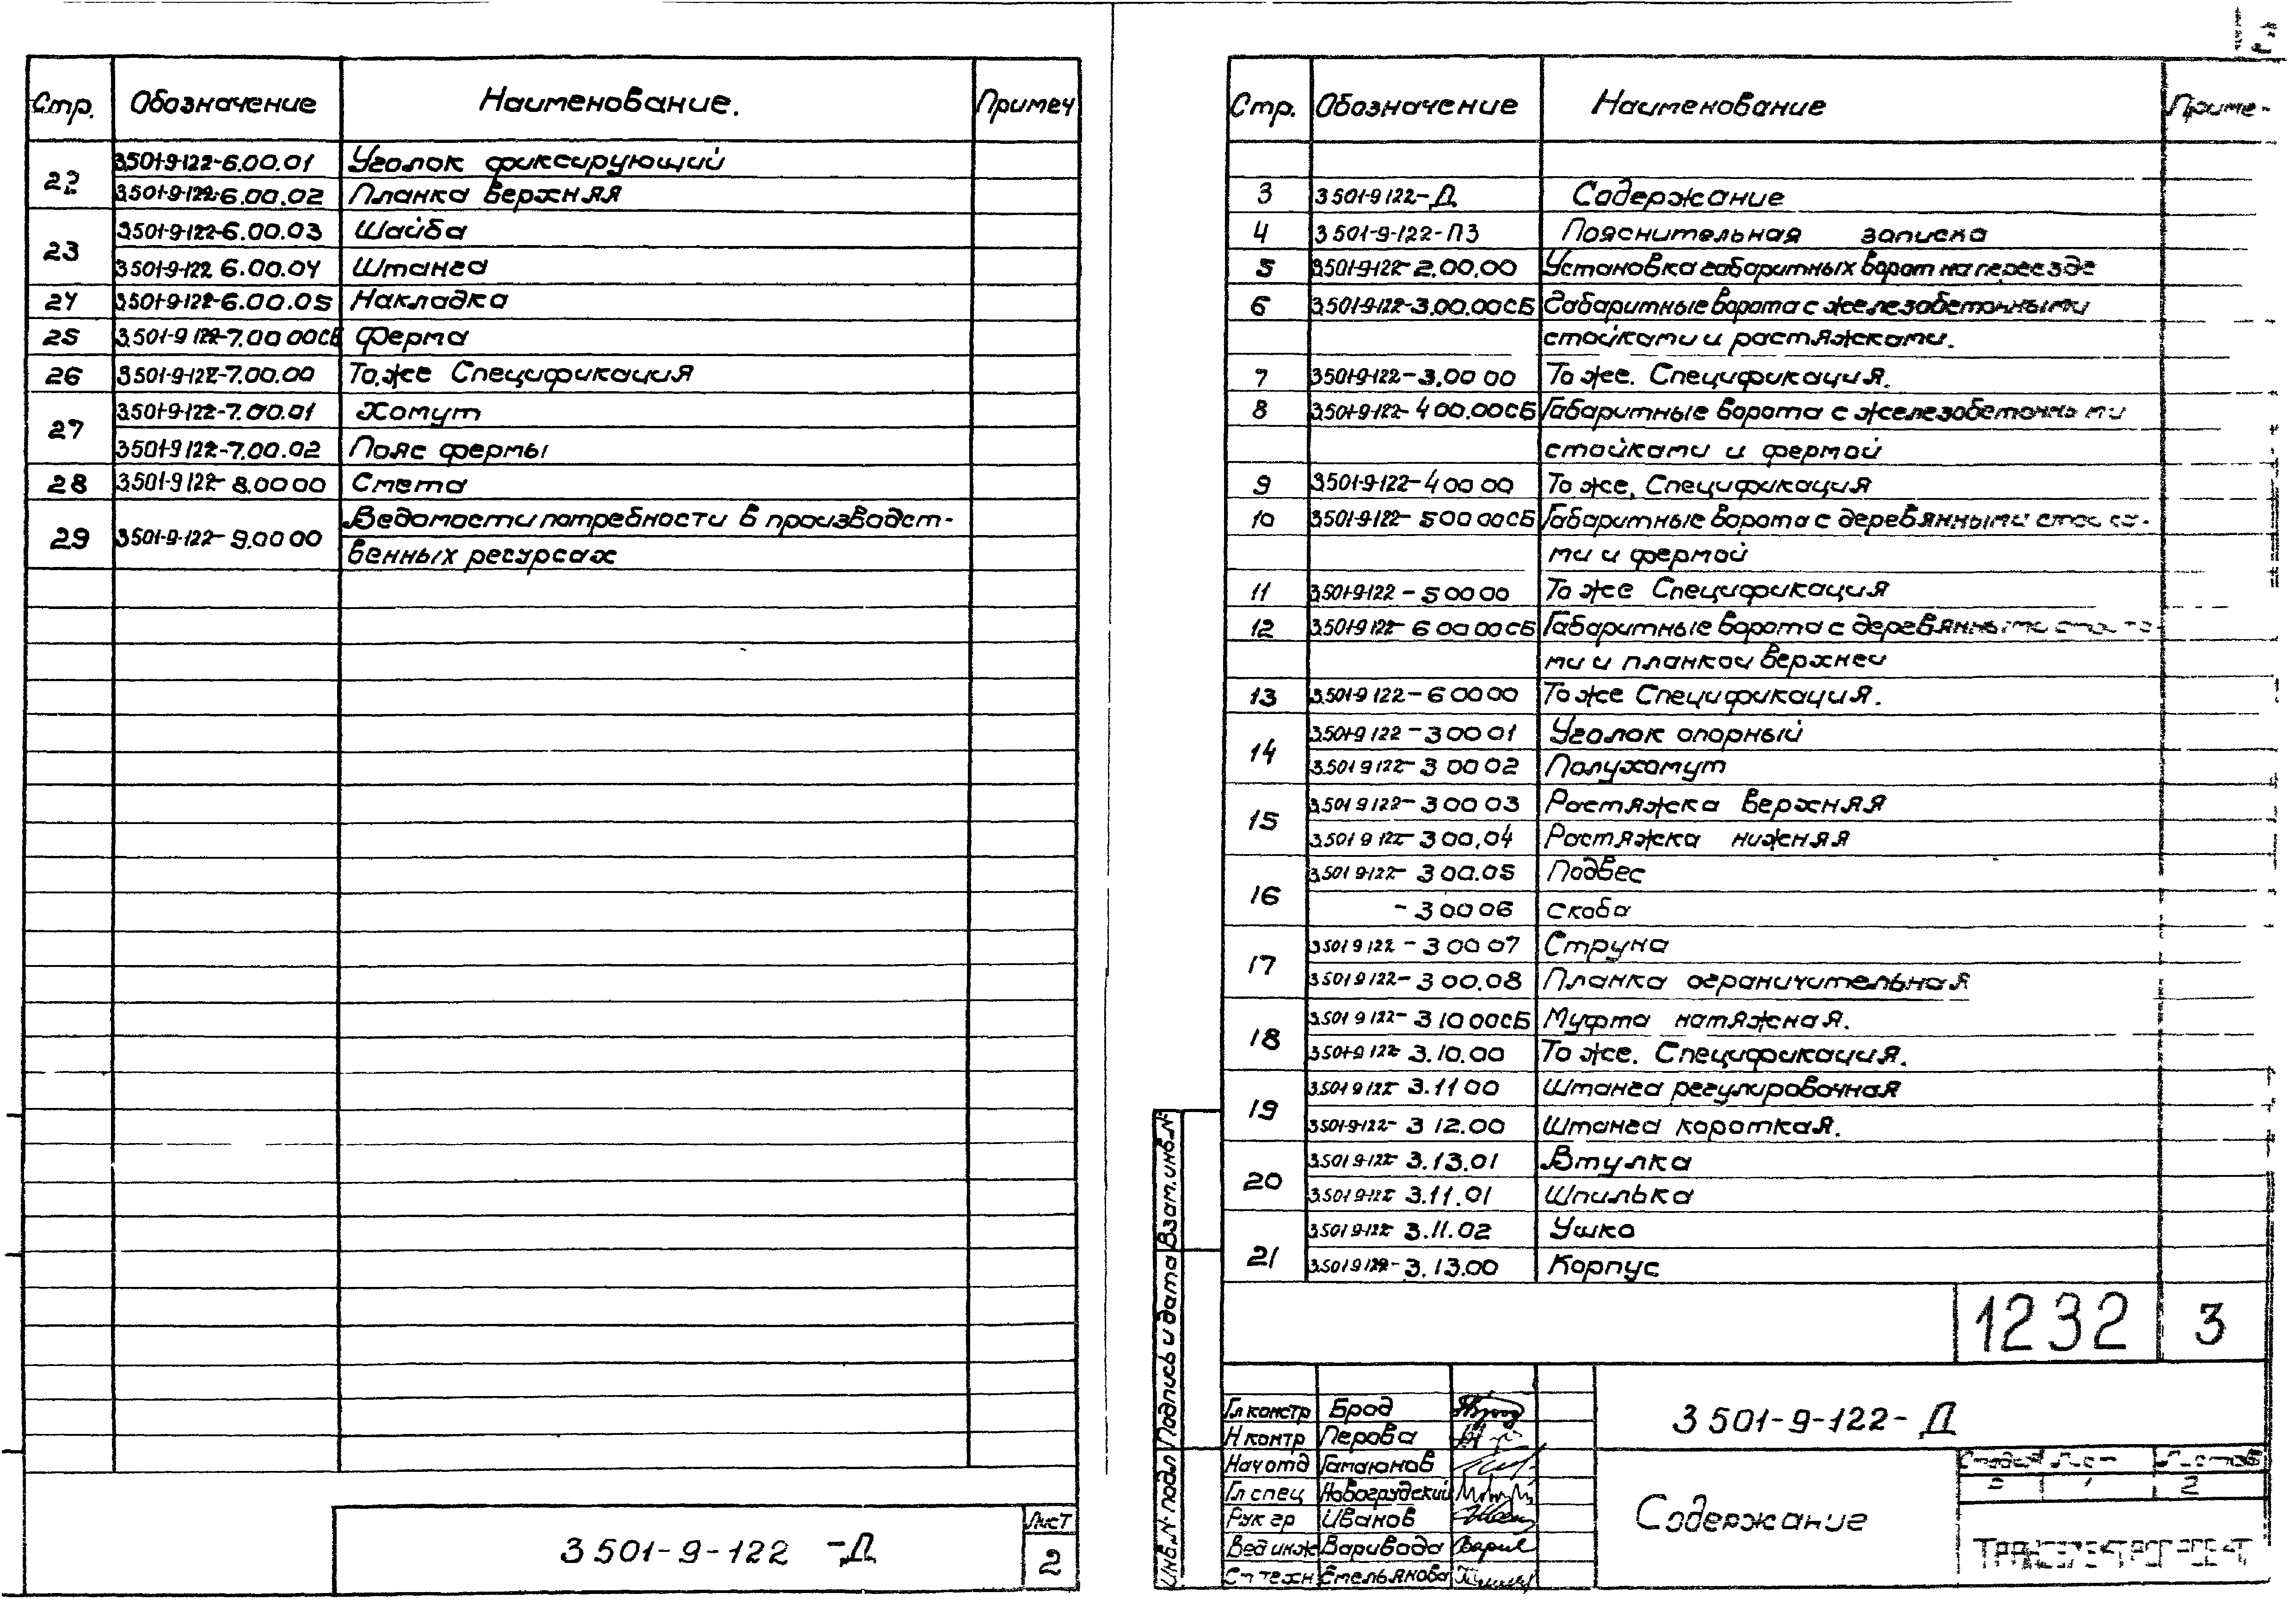 Стр. Обозначение Наименование. Примеч
22 3.501-9-122-6.00.01 Уголок фиксирующий
3.501-9-122-6.00.02 Планка верхняя
23 3.501-9-122-6.00.03 Шайба
3.501-9-122 6.00.04 Штанга
24 3.501-9-122-6.00.05 Накладка
25 3.501-9 122-7.00 00СБ Ферма
26 3.501-9-122-7.00.00 То же Спецификация
27 3.501-9-122-7.00.01 Хомут
3.501-9 122-7.00.02 Пояс фермы
28 3.501-9 122- 8.00 00 Смета
29 3.501-9-122- 9.00 00 Ведомости потребности в производст-
венных ресурсах
3 501-9-122 -Д
Лист
2
Стр. Обозначение Наименование Приме-
3 3 501-9 122-Д Содержание
4 3 501-9-122-ПЗ Пояснительная записка
5 3.501-9-122-2.00.00 Установка габаритных ворот на переезде
6 3.501-9-122-3.00.00СБ Габаритные ворота с железобетонными
стойками и растяжками.
7 3.501-9-122-3.00 00 То же. Спецификация.
8 3.501-9-122-4 00.00СБ Габаритные ворота с железобетонными
стойками и фермой
9 3.501-9-122-4 00 00 То же, Спецификация
10 3.501-9-122- 5 00 00СБ Габаритные ворота с деревянными стойка-
ми и фермой
11 3.501-9-122-5 00 00 То же Спецификация
12 3.501-9 122-6 00 00СБ Габаритные ворота с деревянными стойка-
ми и планкой верхней
13 3.501-9 122-6 00 00 То же Спецификация.
14 3.501-9 122-3 00 01 Уголок опорный
3.501 9 122-3 00 02 Полухомут
15 3.501 9 122-3 00 03 Растяжка верхняя
3.501 9 122-3 00,04 Растяжка нижняя
16 3.501 9-122- 3 00.05 Подвес
-3 00 06 скоба
17 3.501 9 122 -3 00 07 Струна
3.501 9 122-3 00.08 Планка ограничительная
18 3.501 9 122-3 10 00СБ Муфта натяжная.
3.501-9 122- 3.10.00 То же. Спецификация.
19 3.501 9 122- 3.11 00 Штанга регулировочная
3.501-9-122- 3 12.00 Штанга короткая.
20 3.501 9-122- 3.13.01 Втулка
3.501 9-122 3.11.01 Шпилька
21 3.501 9-122- 3.11.02 Ушко
3.501 9 122-3.13.00 Корпус
1232 3
Инв.N подл Подпись и дата Взам.инв.N
Гл констр Брод
Н контр Перова
Нач отд Гамаюнов
Гл спец Новогрудский
Рук гр Иванов
Вед инж Варивода
Ст техн Емельянова
3 501-9-122- Д
Содержание
Стадия Лист Листов
2
ТРАНСЭЛЕКТРОПРОЕКТ